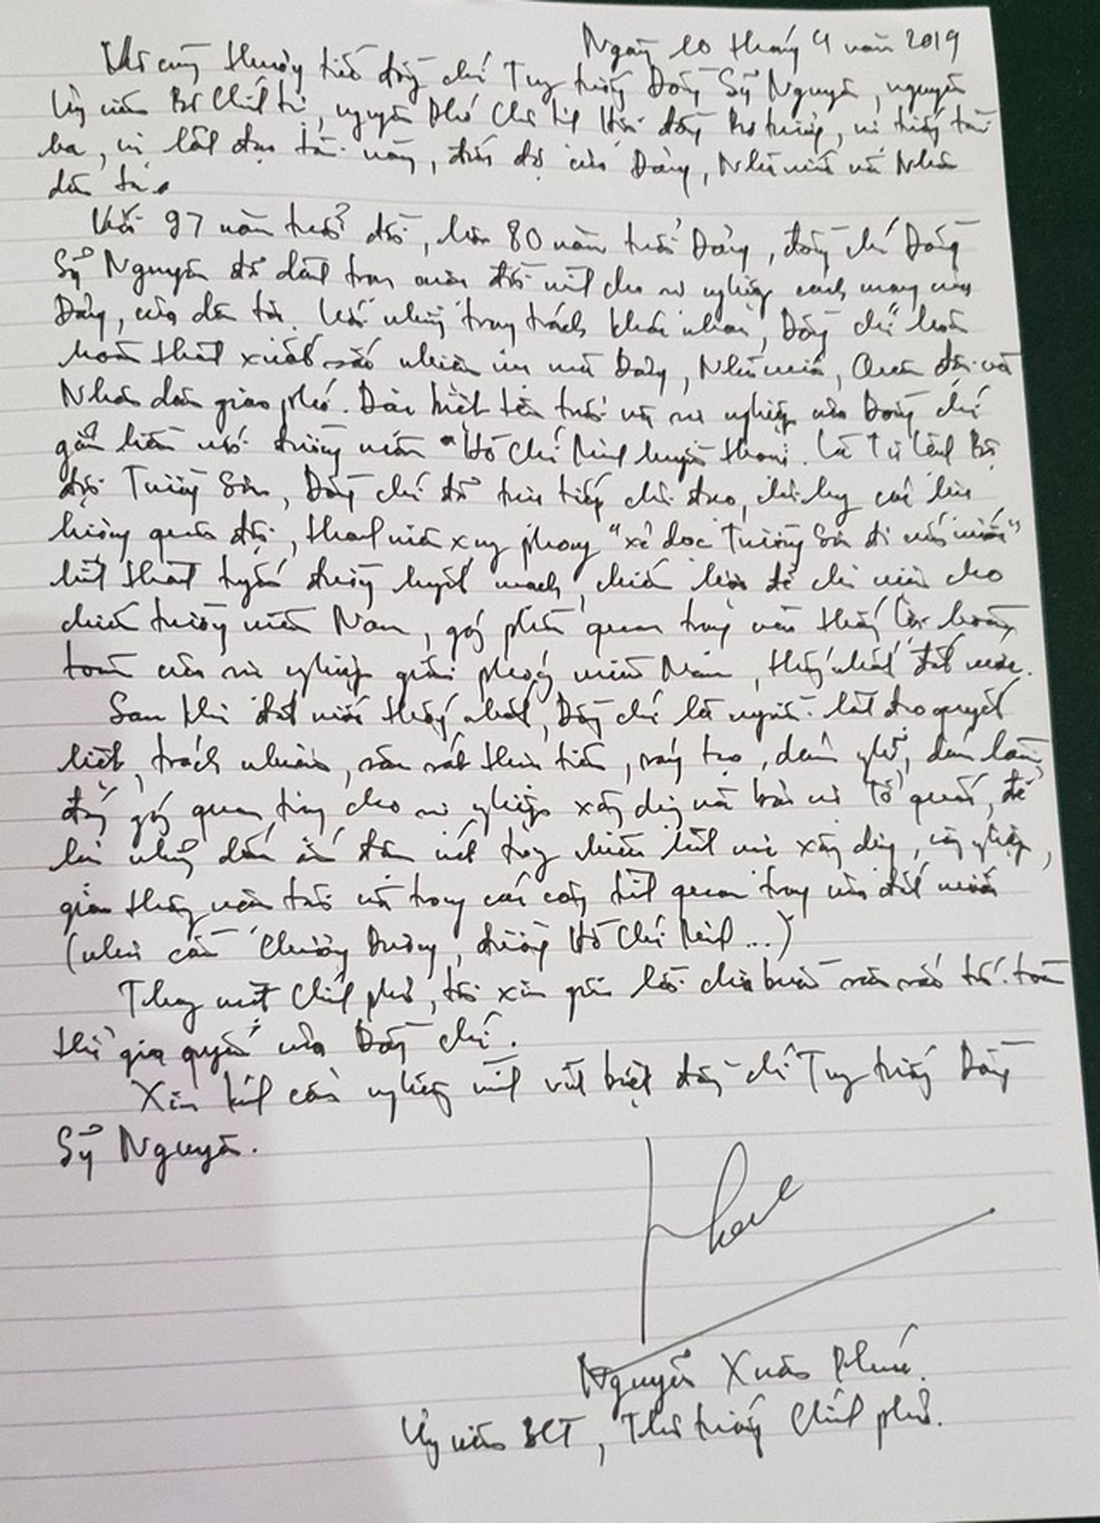 Ngày 10 tháng 4 năm 2019
Vô cùng thương tiếc đồng chí Trung tướng Đồng Sỹ Nguyên, nguyên
Ủy viên Bộ Chính trị, nguyên Phó Chủ tịch Hội đồng Bộ trưởng, vị tướng tài
ba, vị lãnh đạo tài năng, đức độ của Đảng, Nhà nước và Nhân
dân ta.
Với 97 năm tuổi đời, hơn 80 năm tuổi Đảng, đồng chí Đồng
Sỹ Nguyên đã dành trọn cuộc đời mình cho sự nghiệp cách mạng của
Đảng, của dân tộc. Với những trọng trách khác nhau, Đồng chí luôn
hoàn thành xuất sắc nhiệm vụ mà Đảng, Nhà nước, Quân đội và
Nhân dân giao phó. Đặc biệt tên tuổi và sự nghiệp của Đồng chí
gắn liền với đường mòn "Hồ Chí Minh huyền thoại. Là Tư lệnh Bộ
đội Trường Sơn, Đồng chí đã trực tiếp chỉ đạo, chỉ huy các lực
lượng quân đội, thanh niên xung phong "xẻ dọc Trường Sơn đi cứu nước"
hình thành tuyến đường huyết mạch, chiến lược để chi viện cho
chiến trường miền Nam, góp phần quan trọng vào thắng lợi hoàn
toàn của sự nghiệp giải phóng miền Nam, thống nhất đất nước.
Sau khi đất nước thống nhất, Đồng chí là người lãnh đạo quyết
liệt, trách nhiệm, sâu sát thực tiễn, sáng tạo, dám nghĩ, dám làm,
đóng góp quan trọng cho sự nghiệp xây dựng và bảo vệ Tổ quốc, để
lại những dấu ấn đậm nét trong nhiều lĩnh vực xây dựng, công nghiệp,
giao thông vận tải và trong các công trình quan trọng của đất nước
(như cầu Chương Dương, đường Hồ Chí Minh...)
Thay mặt Chính phủ, tôi xin gửi lời chia buồn sâu sắc tới toàn
thể gia quyến của Đồng chí.
Xin kính cẩn nghiêng mình vĩnh biệt đồng chí Trung tướng Đồng
Sỹ Nguyên.
Nguyễn Xuân Phúc
Ủy viên BCT, Thủ tướng Chính phủ.